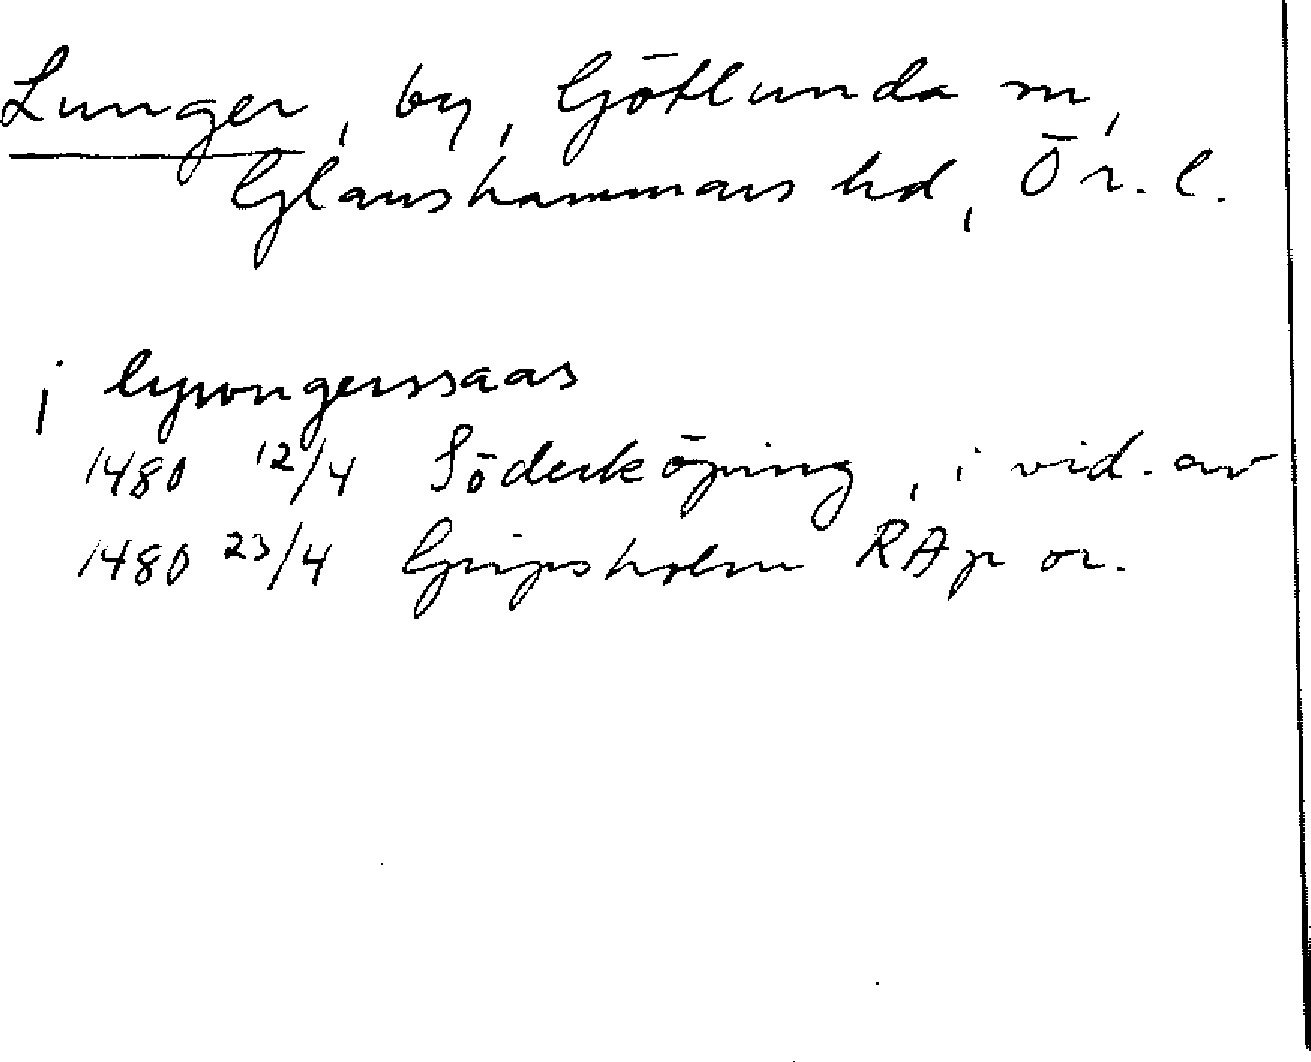 Lunger, by, Götlunda sn,
Glanshammars hd, Ör. l.
i lywngerssaas
1480 12/4 Söderköping, i vid. av
1480 23/4 Gripsholm RAp or.